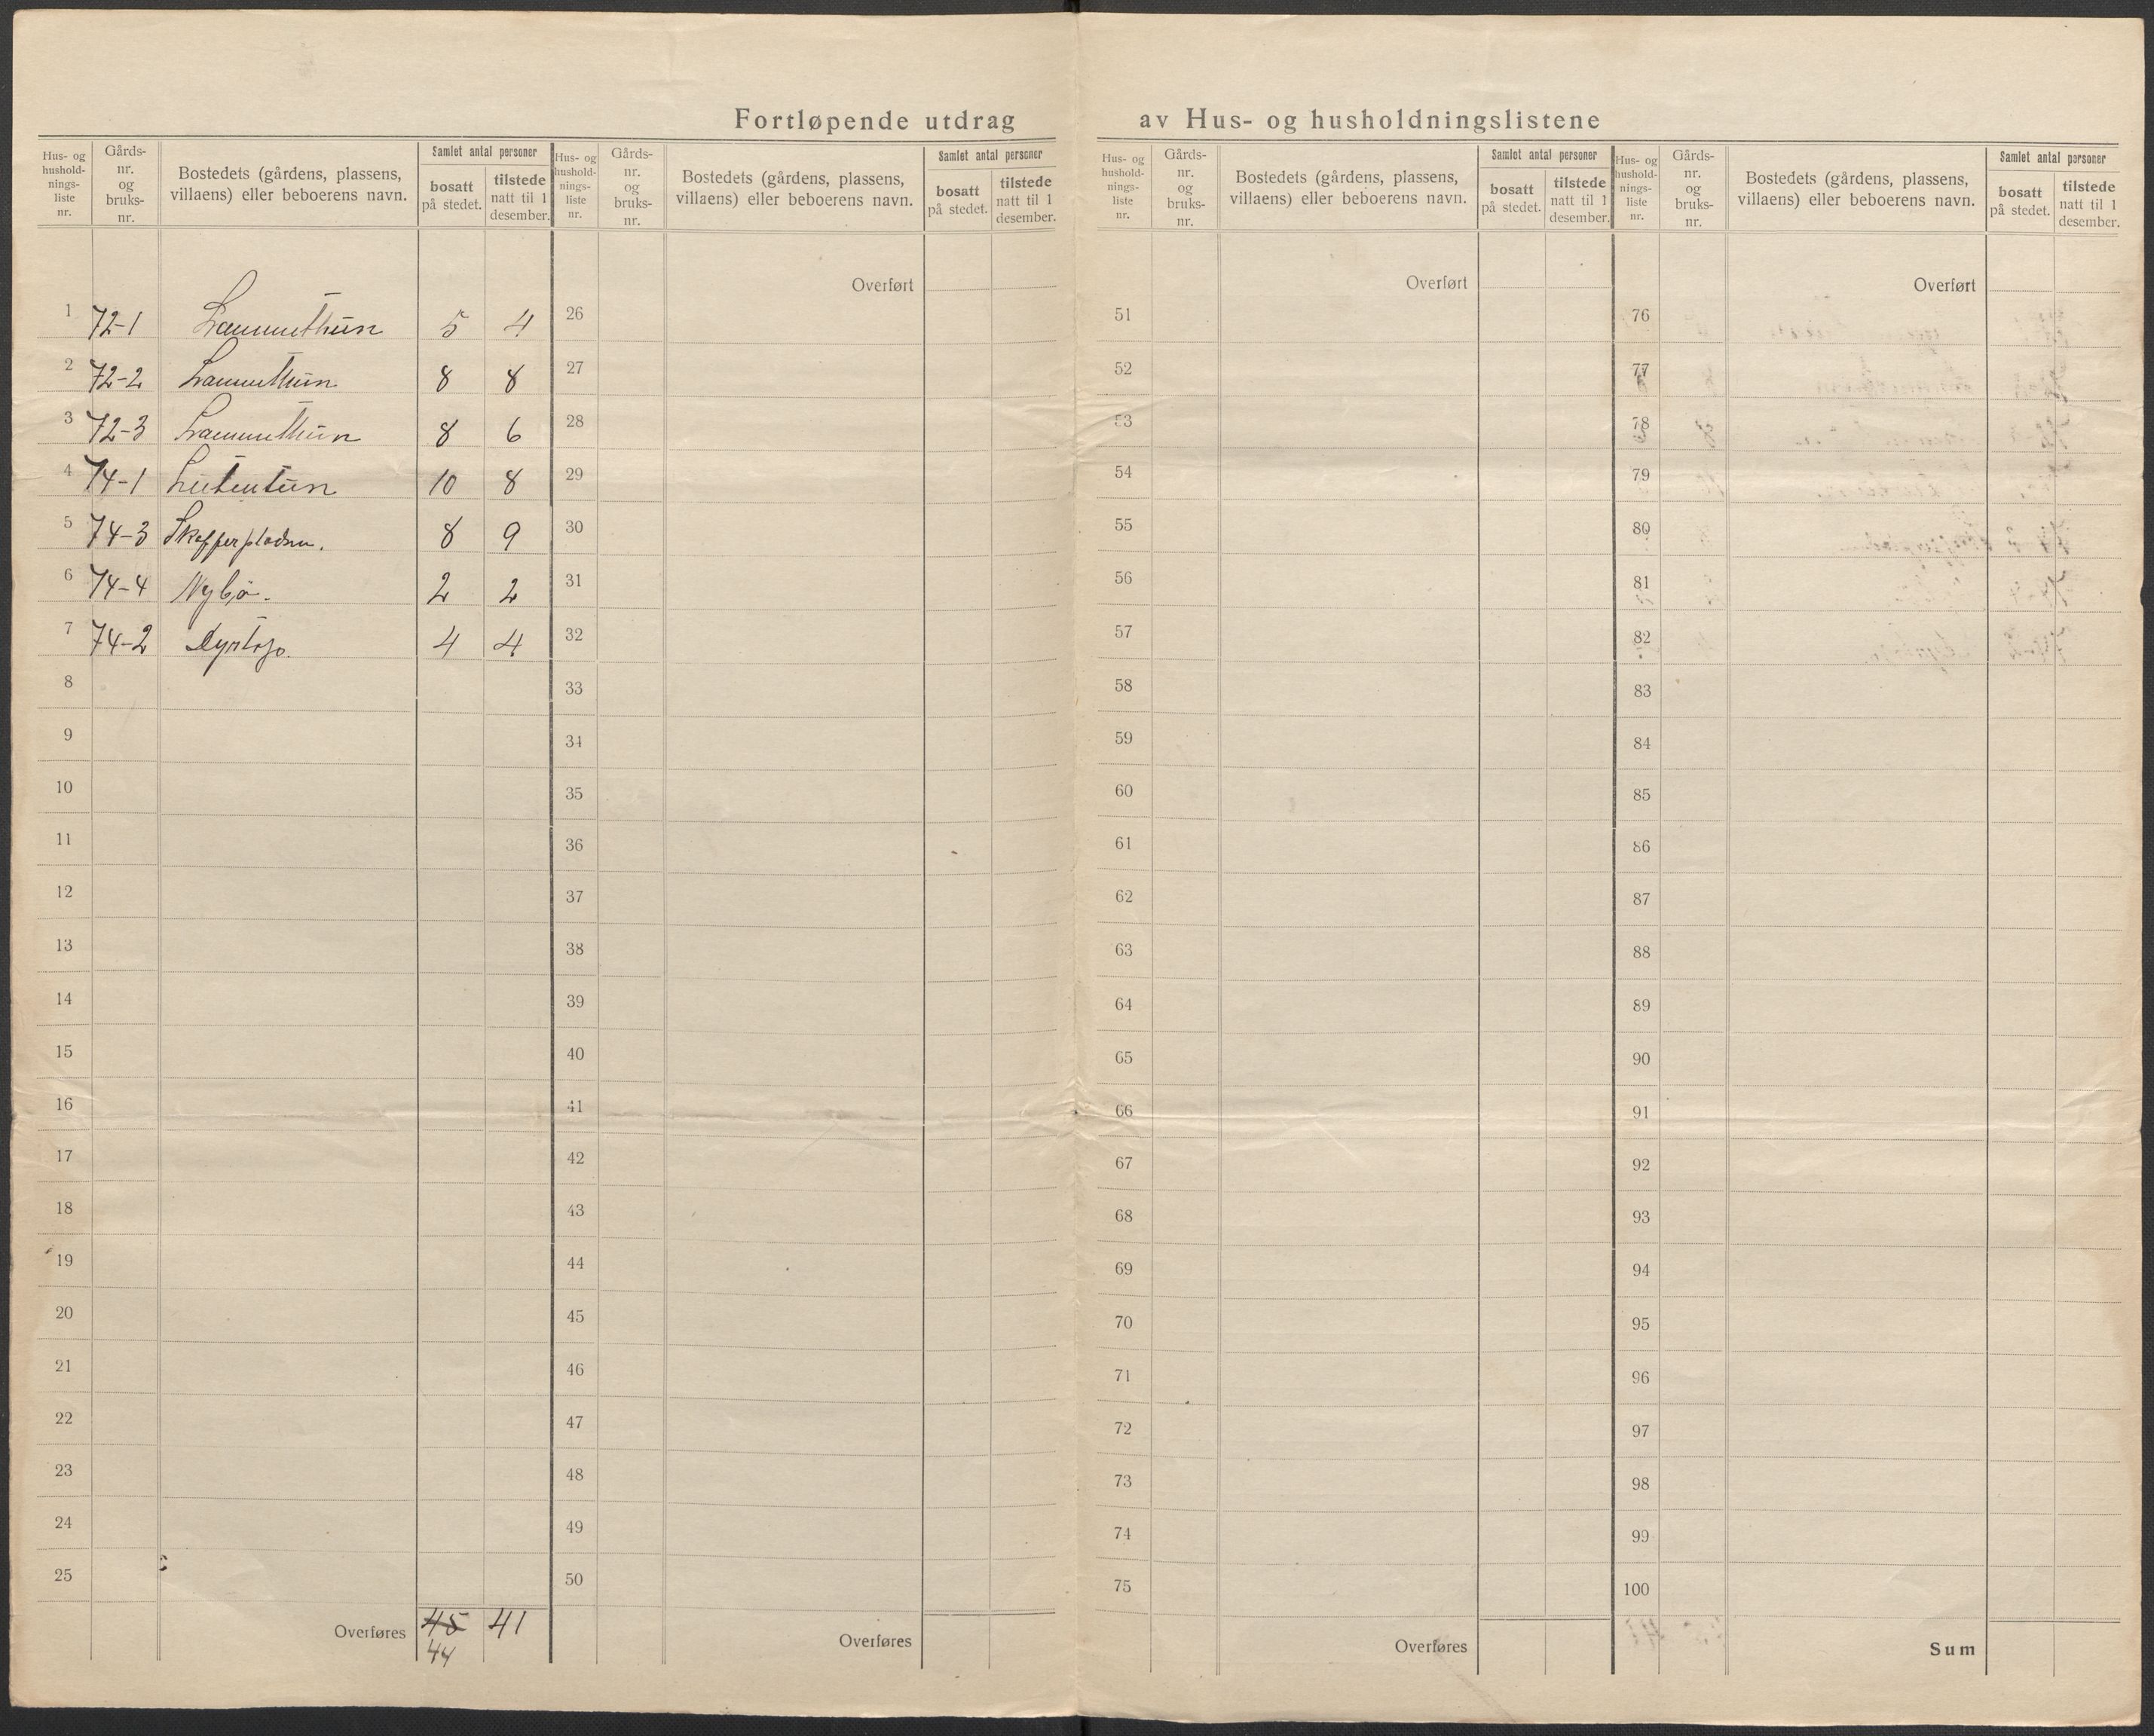 Fortløpende utdrag av Hus- og husholdningslistene
Hus- og hushold-nings-liste nr. Gårds-nr. og bruks-nr. Bostedets (gårdens, plassens, villaens) eller beboerens navn. Samlet antal personer bosatt på stedet. tilstede natt til 1 desember.
Hus- og hushold-nings-liste nr. Gårds-nr. og bruks-nr. Bostedets (gårdens, plassens, villaens) eller beboerens navn. Samlet antal personer bosatt på stedet. tilstede natt til 1 desember.
Hus- og hushold-nings-liste nr. Gårds-nr. og bruks-nr. Bostedets (gårdens, plassens, villaens) eller beboerens navn. Samlet antal personer bosatt på stedet. tilstede natt til 1 desember.
Hus- og hushold-nings-liste nr. Gårds-nr. og bruks-nr. Bostedets (gårdens, plassens, villaens) eller beboerens navn. Samlet antal personer bosatt på stedet. tilstede natt til 1 desember.
Overført Overført Overført
1 72-1 5 4 26 51 76
2 72-2 8 8 27 52 77
3 72-3 8 6 28 53 78
4 74-1 10 8 29 54 79
5 74-3 8 9 30 55 80
6 74-4 Nybø. 2 2 31 56 81
7 74-2 4 4 32 57 82
8 33 58 83
9 34 59 84
10 35 60 85
11 36 61 86
12 37 62 87
13 38 63 88
14 39 64 89
15 40 65 90
16 41 66 91
17 42 67 92
18 43 68 93
19 44 69 94
20 45 70 95
21 46 71 96
22 47 72 97
23 48 73 98
24 49 74 99
25 50 75 100
Overføres 45 41 Overføres Overføres Sum
44